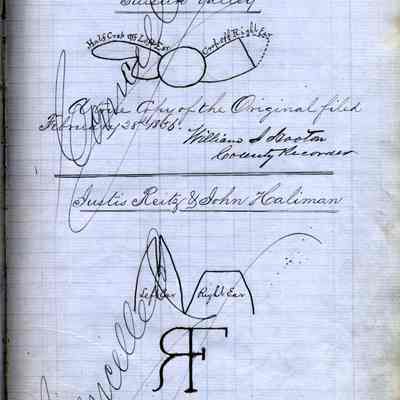 Valley
Half Crop off Left Ear
Crop off Right Ear
A true Copy of the Original filed
February 28th 1866.
William S Booton
County Recorder
Justis Reitz & John Haliman
Left Ear
Right Ear
RF
Cancelled